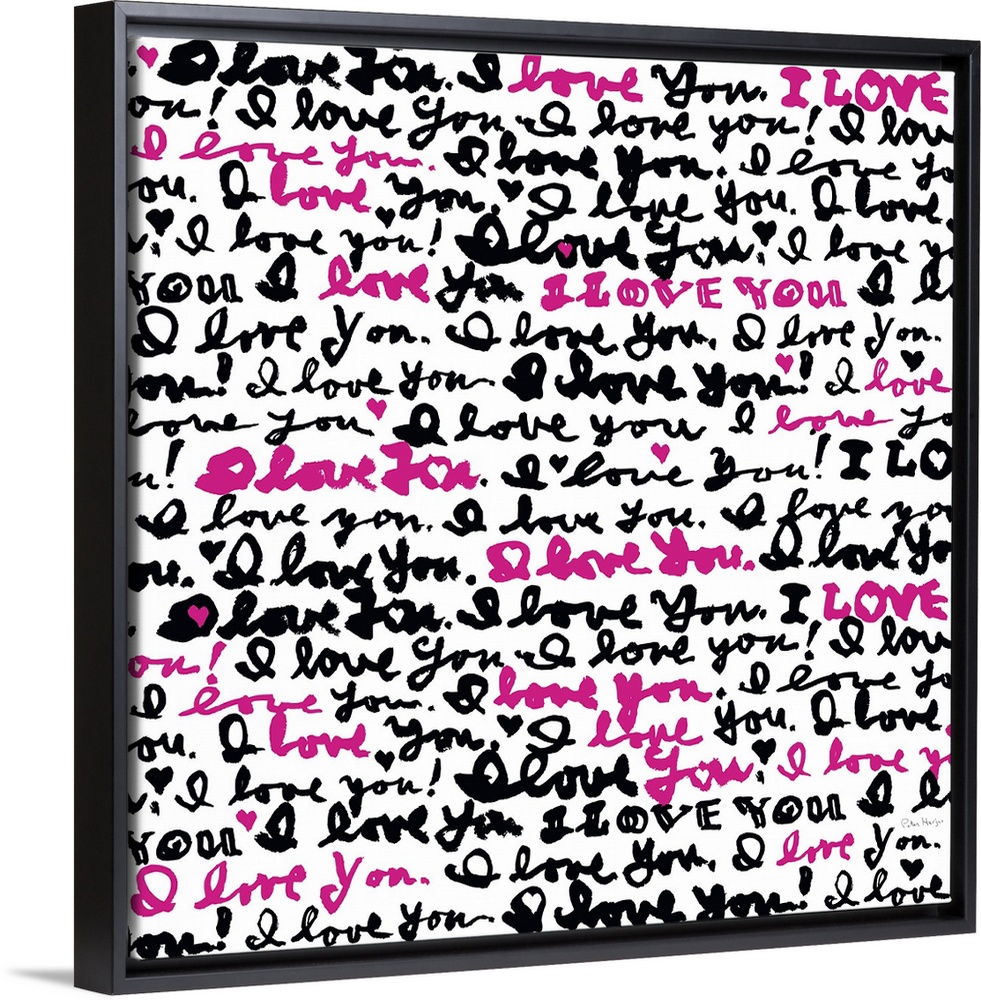 I love You. I love You. I LOVE
ou! I love You. I love you! I lov
I love You. I love You. I love yo
ou. I love You. I love You. I love
I love you! I love You. I love y
YOU I love You I LOVE YOU I l
I love You. I love You. I love You.
ou! I love You I love You! I love
love You I love you I love yo
u! I love You. I love You! I LO
I love you. I love You. I love yo
ou. I love You. I love You. I love Yo
I love You. I love You. I LOVE
ou! I love You. I love you! I lov
I love You. I love You. I love yo
ou. I love You. I love You. I love
I love you! I love You. I love y
YOU I love You I LOVE YOU I l
I love You. I love You. I love You.
ou! I love You I love You! I love